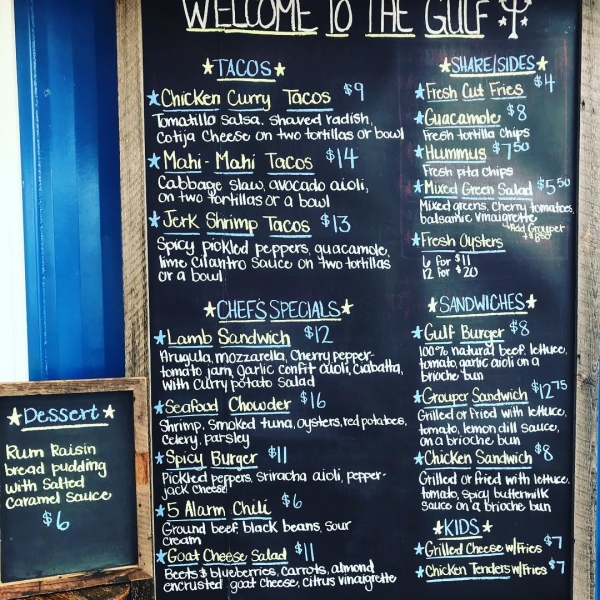 WELCOME TO THE GULF
TACOS
Chicken Curry Tacos $9
Tomatillo salsa, shaved radish,
Cotija Cheese on two tortillas or bowl
Mahi-Mahi Tacos $14
Cabbage slaw, avocado aioli,
on two tortillas or a bowl
Jerk Shrimp Tacos $13
Spicy pickled peppers, guacamole,
lime cilantro sauce on two tortillas
or a bowl
CHEF'S SPECIALS
Lamb Sandwich $12
Arugula, mozzarella, Cherry pepper-
tomato jam, garlic confit aioli, ciabatta,
with curry potato salad
Seafood Chowder $16
Shrimp, smoked tuna, oysters, red potatoes,
celery, parsley
Spicy Burger $11
Pickled peppers, sriracha aioli, pepper-
jack cheese
5 Alarm Chili $6
Ground beef, black beans, sour
cream
Goat Cheese Salad $11
Beets & blueberries, carrots, almond
encrusted goat cheese, citrus vinaigrette
SHARE/SIDES
Fresh Cut Fries $4
Guacamole $8
Fresh tortilla chips
Hummus $7.50
Fresh pita chips
Mixed Green Salad $5.50
Mixed greens, cherry tomatoes,
balsamic vinaigrette
Add Grouper
Fresh Oysters
6 for $11
12 for $20
SANDWICHES
Gulf Burger $8
100% natural beef, lettuce,
tomato, garlic aioli on a
brioche bun
Grouper Sandwich $12.75
Grilled or fried with lettuce,
tomato, lemon dill sauce,
on a brioche bun
Chicken Sandwich $8
Grilled or fried with lettuce,
tomato, spicy buttermilk
sauce on a brioche bun
KIDS
Grilled Cheese w/Fries $7
Chicken Tenders w/Fries $7
Dessert
Rum Raisin
bread pudding
with Salted
Caramel Sauce
$6